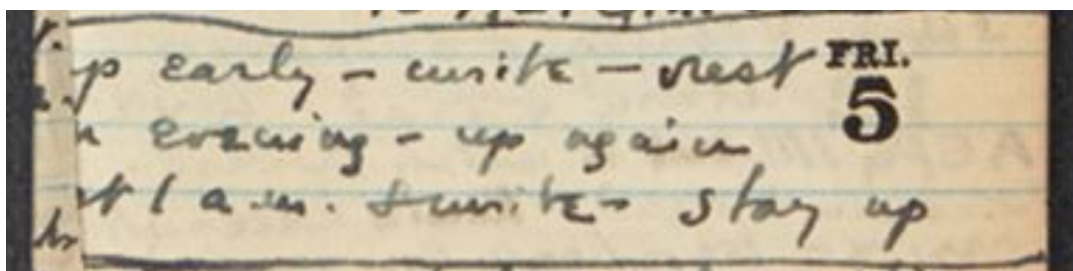 p early – write – rest FRI.
evening – up again 5
at 1 a.m. & write – stay up